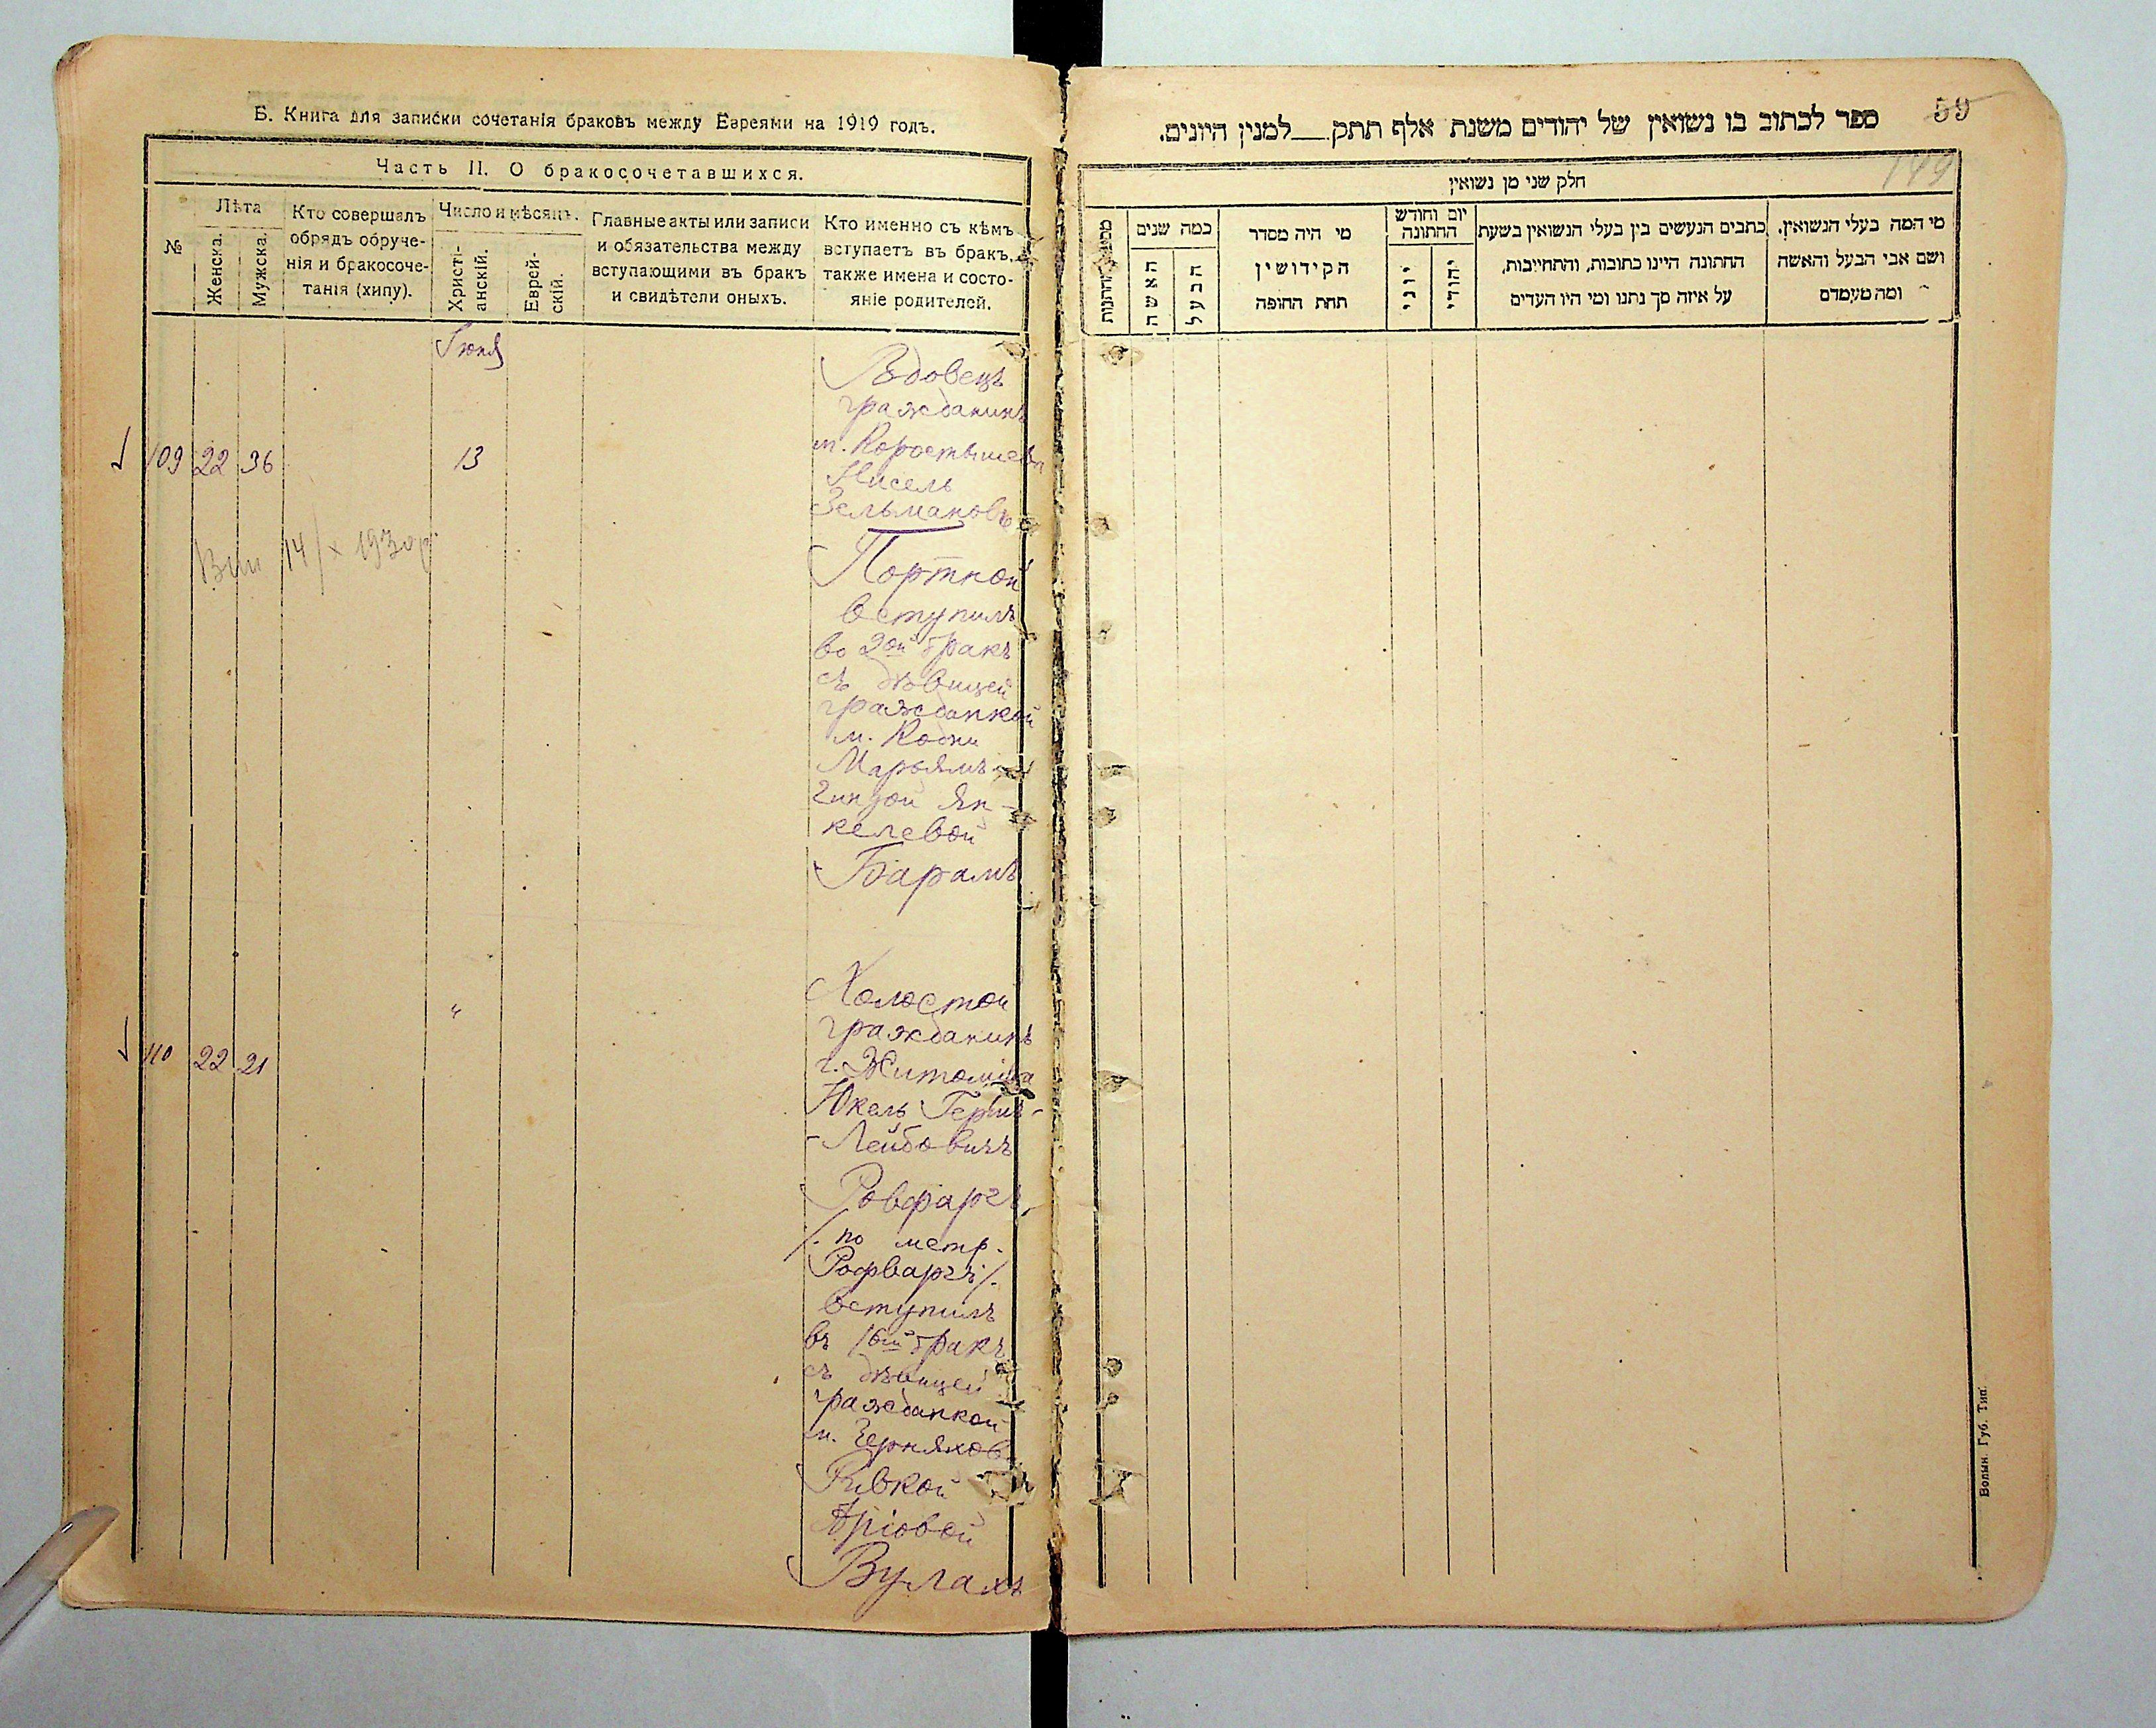 Б. Книга для записки сочетанія браковъ между Евреями на 1919 годъ.
Часть II. О бракосочетавшихся.
№
Лѣта
Женска.
Мужска.
Кто совершалъ
обрядъ обруче-
нія и бракосоче-
танія (хипу).
Число и мѣсяцъ.
Христі-
анскій.
Еврей-
скій.
Главные акты или записи
и обязательства между
вступающими въ бракъ
и свидѣтели оныхъ.
Кто именно съ кѣмъ
вступаетъ въ бракъ,
также имена и состо-
яніе родителей.
Іюнь
109 22 36 13
Вдовецъ
гражданинъ
м. Коростышева
Нисель
Зельмановъ
Портной
вступилъ
во 2ой бракъ
съ дѣвицей
гражданкой
м. Кодни
Марьямъ-
Гинзой Ян-
келевой
Барамъ
14/X 1930 г.
110 22 21 "
Холостой
гражданинъ
г. Житомира
Юкель Гершъ-
-Лейбовичъ
Ровфаргъ
/. по метр.
Рофваргъ /.
вступилъ
въ 1ый бракъ
съ дѣвицей
гражданкой
м. Черняхова
Ривкой
Аріовой
Вулахъ
59
149
ספר לכתוב בו נשואין של יהודים משנת אלף תתק___למנין היונים.
חלק שני מן נשואין
מי המה בעלי הנשואין.
ושם אבי הבעל והאשה
ומה מעמדם
כתבים הנעשים בין בעלי הנשואין בשעת
החתונה היינו כתובות, והתחייבות,
על איזה סך נתנו ומי היו העדים
יום וחודש
החתונה
יהודי
יוני
מי היה מסדר
הקידושין
תחת החופה
כמה שנים
הבעל
האשה
Волын. Губ. Тип.